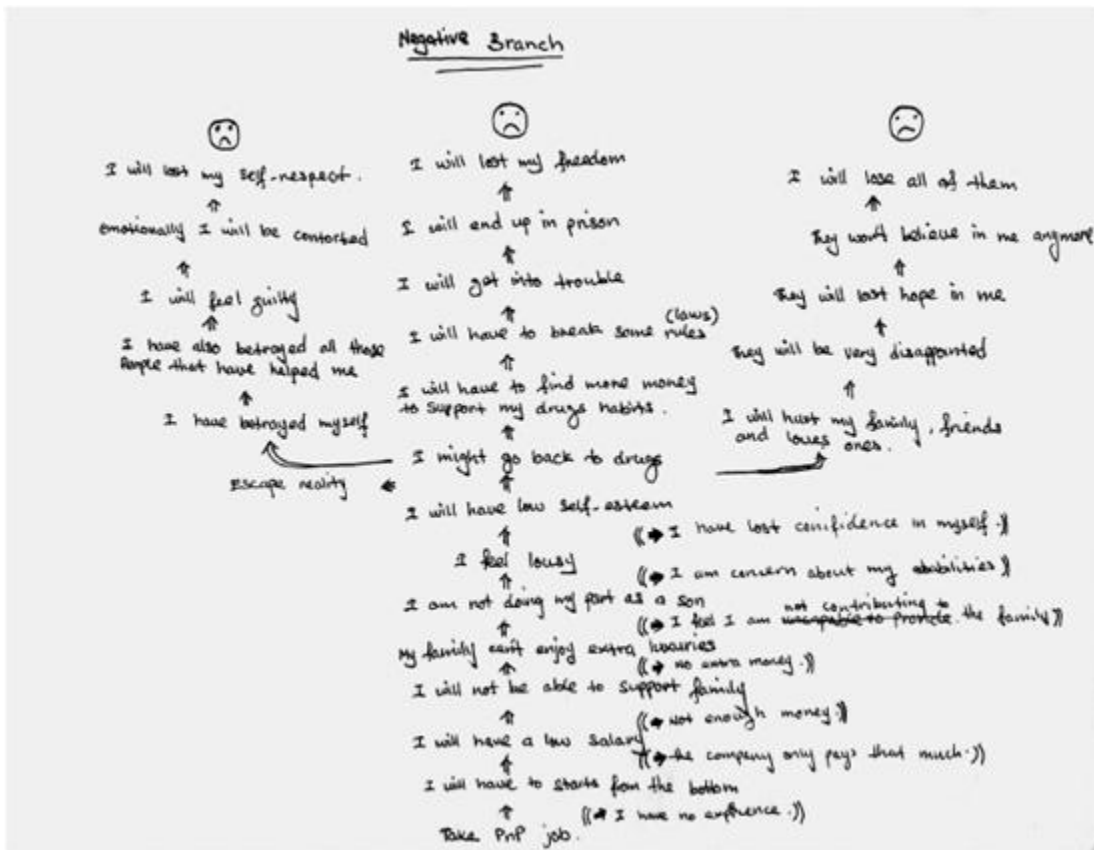 Negative Branch
I will lost my self-respect.
emotionally I will be contorted
I will feel guilty
I have also betrayed all those
People that have helped me
I have betrayed myself
Escape reality
I will lost my freedom
I will end up in prison
I will get into trouble
(laws)
I will have to break some rules
I will have to find more money
to support my drugs habits.
I might go back to drugs
I will have low self-esteem
I feel lousy
I am not doing my part as a son
My family can't enjoy extra luxuries
I will not be able to support family
I will have a low salary
I will have to starts from the bottom
Take PnP job.
I will lose all of them
They won't believe in me anymore
They will lost hope in me
They will be very disappointed
I will hurt my family, friends
and loves ones.
((→ I have lost conifidence in myself.))
((→ I am concern about my abilities))
not contributing to
((→ I feel I am the family))
((→ No extra money.))
((→ Not enough money.))
((→ the company only pays that much.))
((→ I have no exprience.))